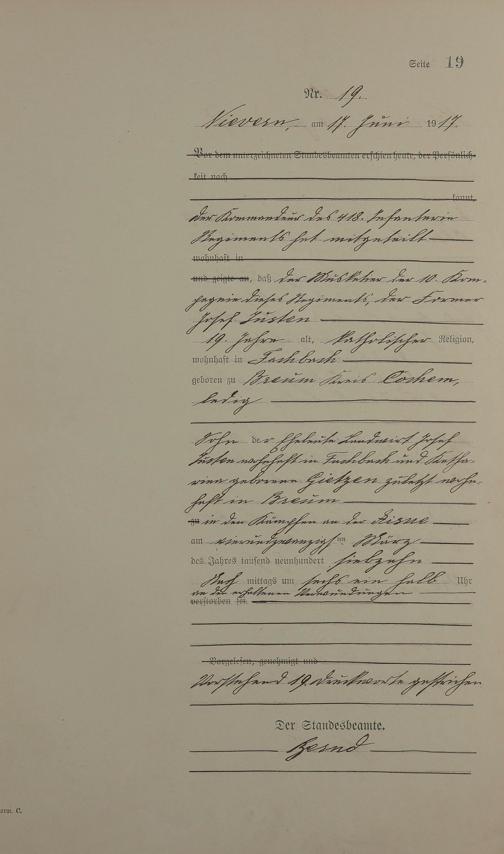 Seite 19
Nr. 19.
Nievern, am 17. Juni 1917
Vor dem unterzeichneten Standesbeamten erschien heute, der Persönlich-
keit nach
kannt,
Der Kommandeur des 418. Infanterie
Regiments hat mitgeteilt
wohnhaft in
und zeigte an, daß der Musketier der 10. Kom-
pagnie dieses Regiments, der Former
Josef Justen
19 Jahre alt, katholischer Religion,
wohnhaft in Fachbach
geboren zu Kreis Cochem,
ledig
Sohn der Eheleute Landwirt Josef
Justen wohnhaft in Fachbach und Katha-
rina geborene Gietzen zuletzt wohn-
haft in
zu in den Kämpfen an der Aisne
am vierundzwanzigsten März
des Jahres tausend neunhundert siebzehn
Nach mittags um sechs ein halb Uhr
an den erhaltenen Verwundungen
verstorben sei.
Vorgelesen, genehmigt und
Vorstehend 19 Druckworte gestrichen
Der Standesbeamte.
C.